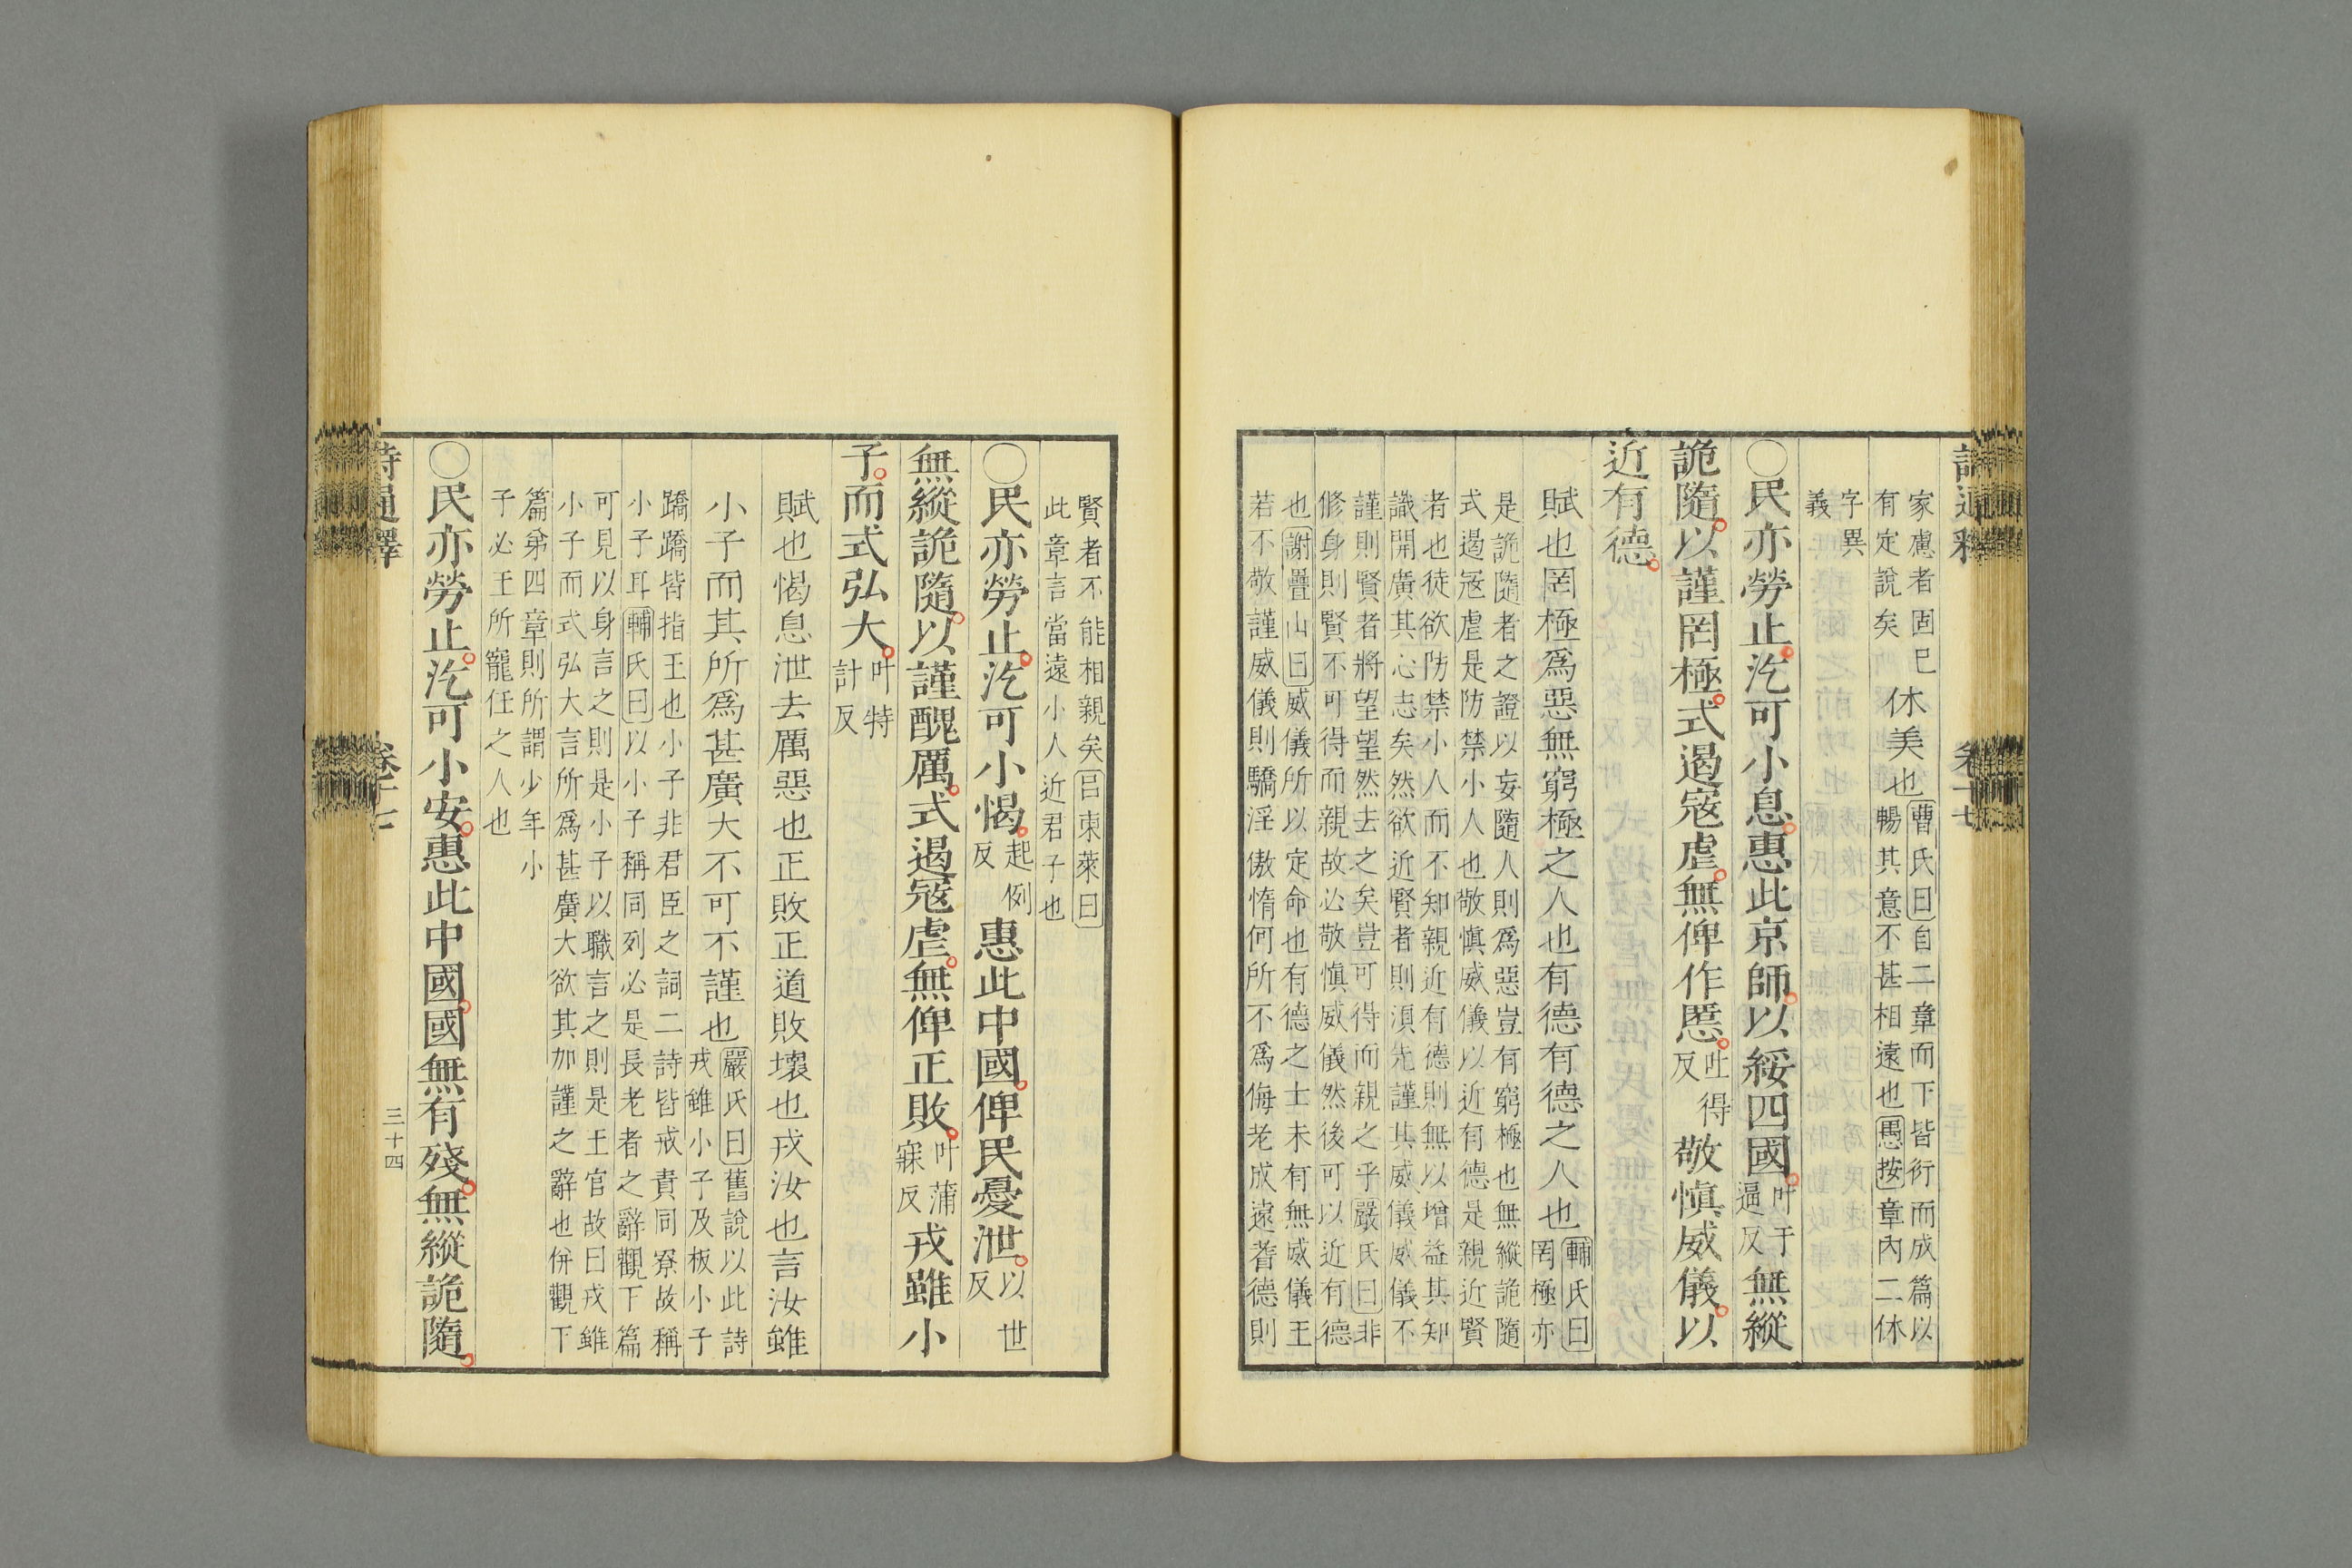 詩通釋 卷十七
家慮者固已
有定說矣
休美也
曹氏曰自二章而下皆衍而成篇以
暢其意不甚相遠也愚按章內二休
字異
義
○民亦勞止汔可小息惠此京師以綏四國叶于逼反無縱
詭隨以謹罔極式遏寇虐無俾作慝吐得反敬愼威儀以
近有德
賦也罔極爲惡無窮極之人也有德有德之人也輔氏曰罔極亦
是詭隨者之證以妄隨人則爲惡豈有窮極也無縱詭隨
式遏寇虐是防禁小人也敬愼威儀以近有德是親近賢
者也徒欲防禁小人而不知親近有德則無以增益其知
識開廣其心志矣然欲近賢者則須先謹其威儀威儀不
謹則賢者將望望然去之矣豈可得而親之乎嚴氏曰非
修身則賢不可得而親故必敬愼威儀然後可以近有德
也謝疊山曰威儀所以定命也有德之士未有無威儀王
若不敬謹威儀則驕淫傲惰何所不爲侮老成遠耆德則
賢者不能相親矣呂東萊曰
此章言當遠小人近君子也
○民亦勞止汔可小愒起例反惠此中國俾民憂泄以世反
無縱詭隨以謹醜厲式遏寇虐無俾正敗叶蒲寐反戎雖小
子而式弘大叶特計反
賦也愒息泄去厲惡也正敗正道敗壞也戎汝也言汝雖
小子而其所爲甚廣大不可不謹也嚴氏曰舊說以此詩戎雖小子及板小子
蹻蹻皆指王也小子非君臣之詞二詩皆戒責同寮故稱
小子耳輔氏曰以小子稱同列必是長老者之辭觀下篇
可見以身言之則是小子以職言之則是王官故曰戎雖
小子而式弘大言所爲甚廣大欲其加謹之辭也併觀下
篇第四章則所謂少年小
子必王所寵任之人也
○民亦勞止汔可小安惠此中國國無有殘無縱詭隨
詩通釋 卷十七 三十四